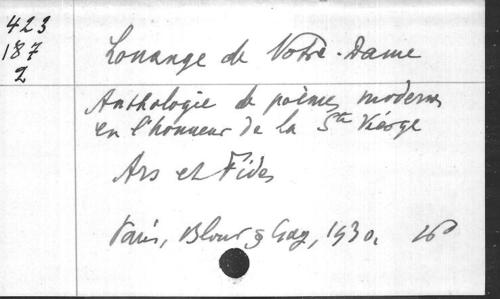 423
187
2
Louange de Notre-Dame
Anthologie de poèmes modernes
en l'honneur de la Ste Vierge
Ars et Fides
Paris, Bloud & Gay, 1930. 16°